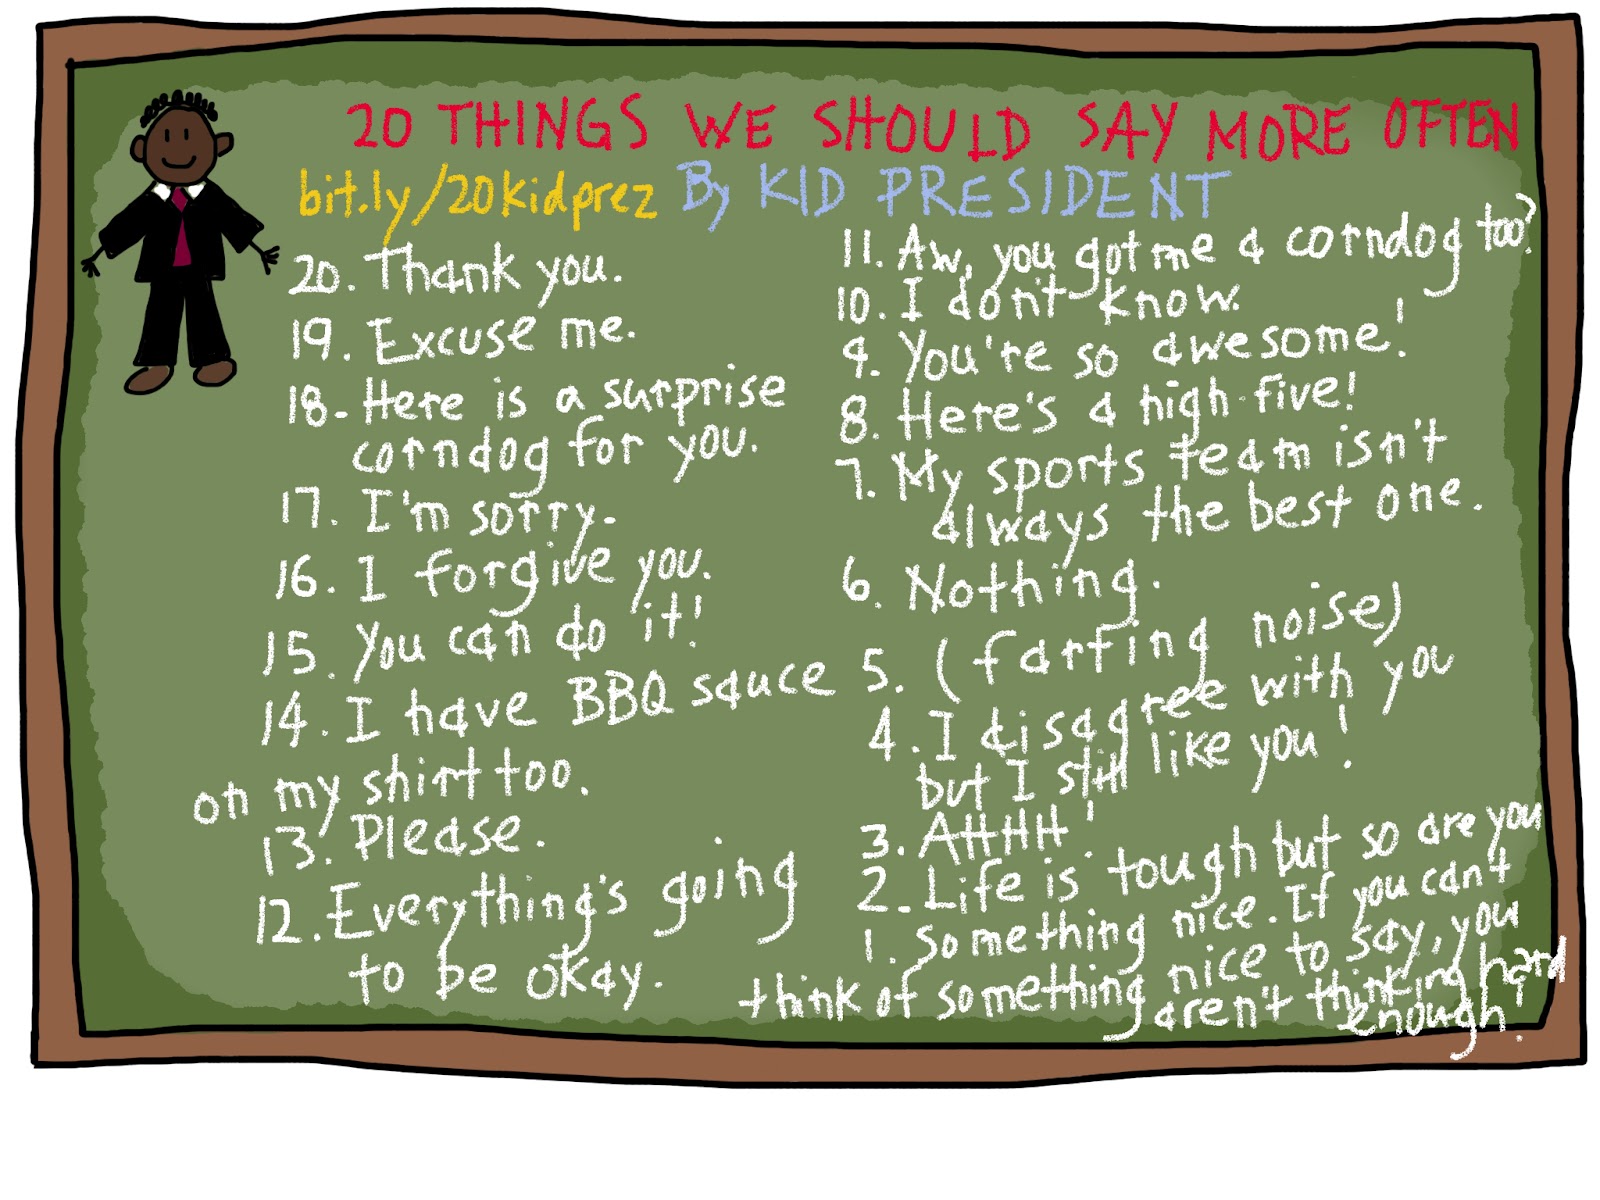 20 THINGS WE SHOULD SAY MORE OFTEN
bit.ly/20kidprez By KID PRESIDENT
20. Thank you.
19. Excuse me.
18- Here is a surprise
corndog for you.
17. I'm sorry.
16. I forgive you.
15. You can do it!
14. I have BBQ sauce
on my shirt too.
13. Please.
12. Everything's going
to be okay.
11. Aw, you got me a corndog too?
10. I don't know.
9. You're so awesome!
8. Here's a high-five!
7. My sports team isn't
always the best one.
6. Nothing.
5. (farting noise)
4. I disagree with you
but I still like you!
3. AHHHH!
2. Life is tough but so are you
1. Something nice. If you can't
think of something nice to say, you
aren't thinking hard
enough.